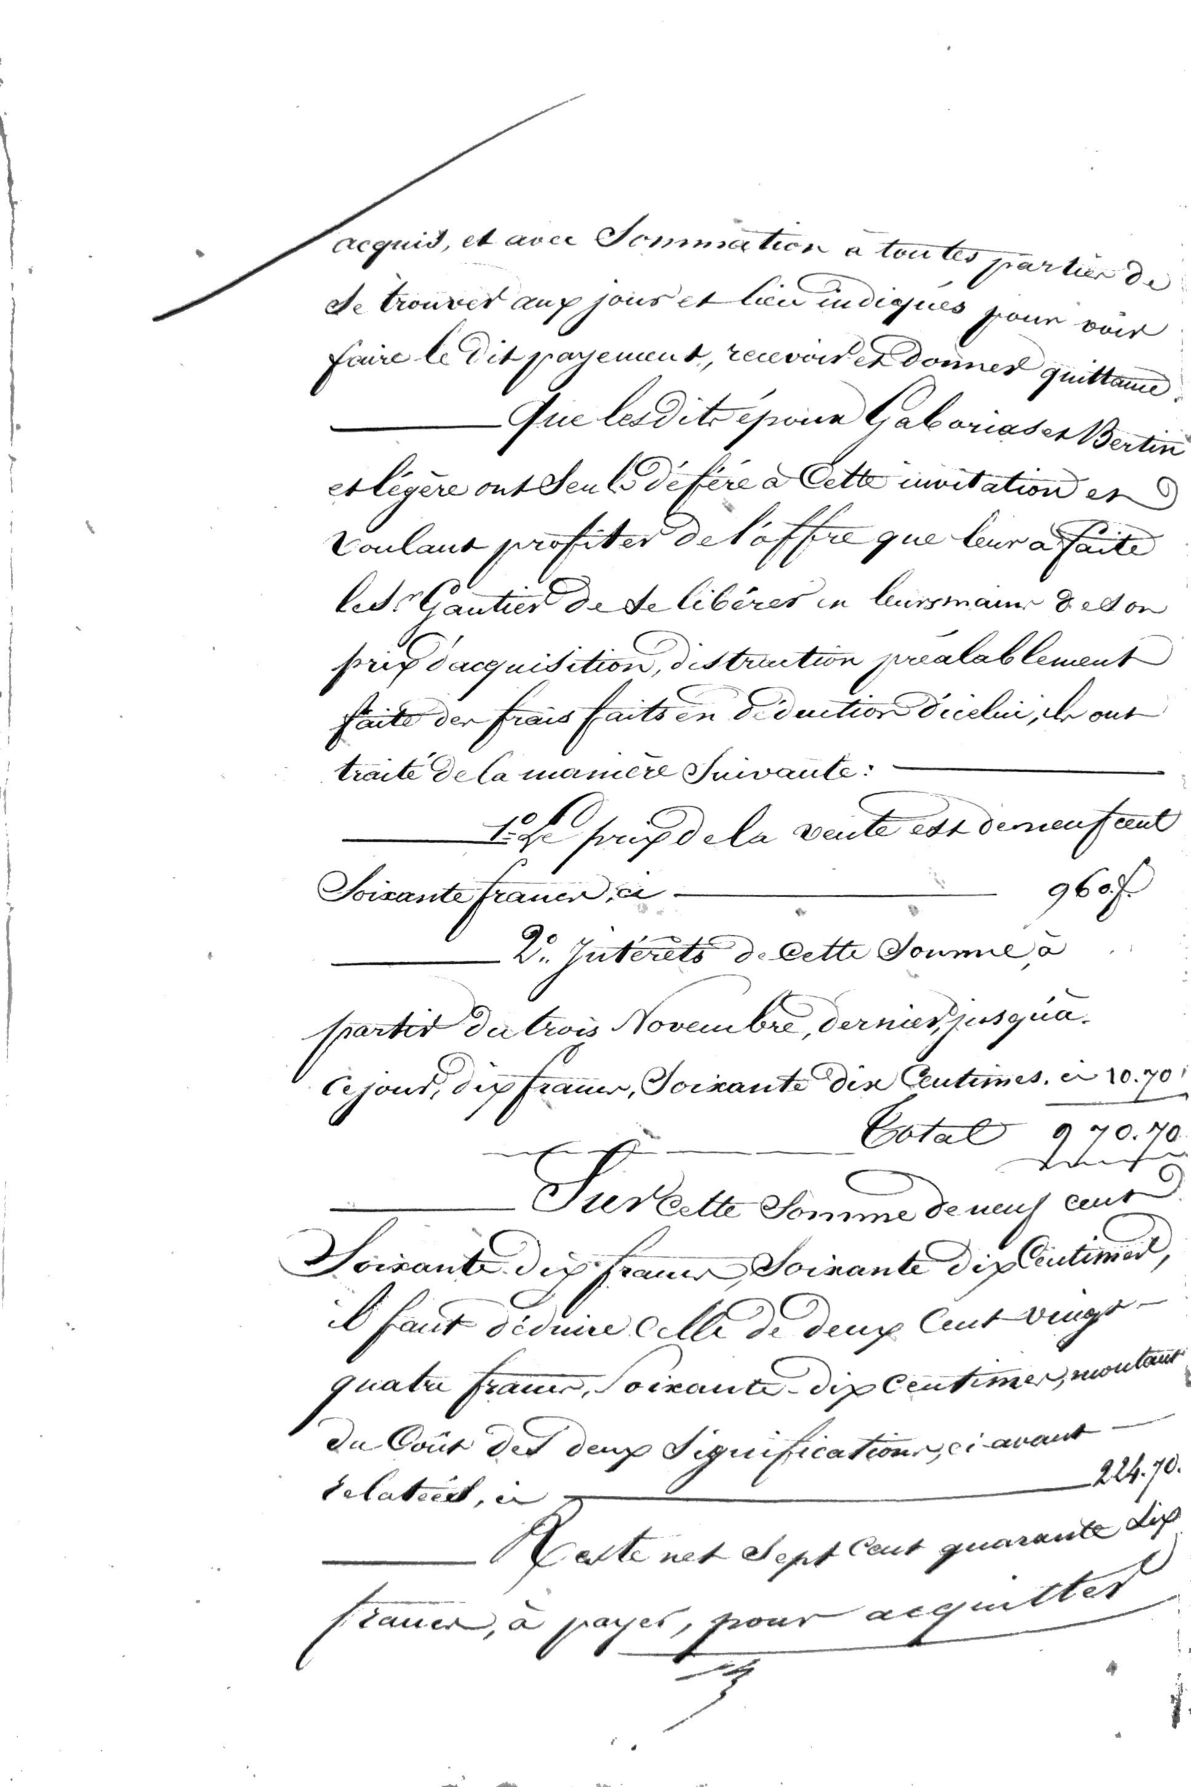 acquis, et avec Sommation à toutes parties de
se trouver aux jour et lieu indiqués pour voir
faire le dit payement, recevoir et donner quittance.
Que lesdits époux Gaborias et Bertin
et légère ont seuls déféré à Cette invitation et
voulant profiter de l'offre que leur a faite
le Sr Gautier de se libérer en leurs mains de son
prix d'acquisition, distruction préalablement
faite des frais faits en déduction d'icelui, ils ont
traité de la manière suivante :
1º Le prix de la vente est de neuf cent
Soixante francs, ci 960.f.
2º. Intérêts de Cette Somme, à
partir du trois Novembre, dernier, jusqu'à
ce jour, dix francs, Soixante dix Centimes. ci 10.70
Total 970.70
Sur Cette Somme de neuf cent
Soixante dix francs, Soixante dix Centimes,
il faut déduire Celle de deux Cent vingt
quatre francs, Soixante-dix Centimes, montant
du Coût des deux significations, ci-avant
relatées, ci 224.70.
Reste net Sept Cent quarante six
francs, à payer, pour acquitter